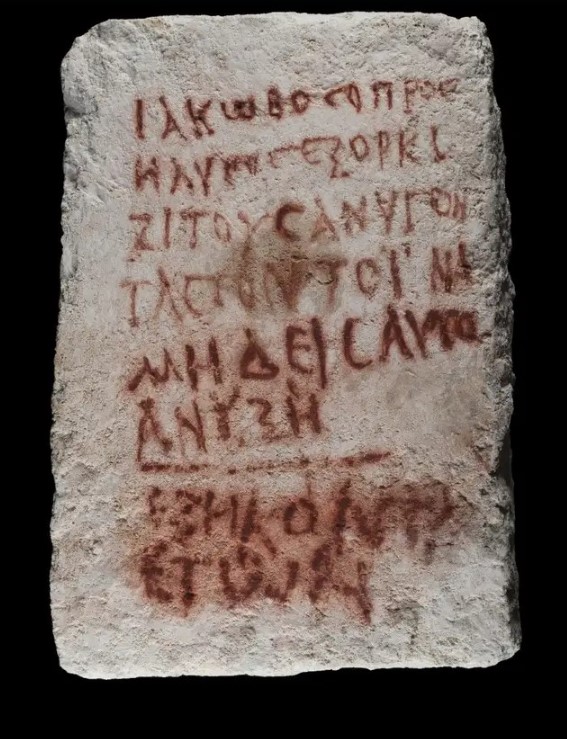 ΙΑΚΩΒΟС Ο ΠΡΟС
ΗΛΥΤΟС ΕΞΟΡΚΙ
ΖΙ ΤΟΥС ΑΝΥΓΟΝ
ΤΑС ΤΟΥΤΟ ΙΝΑ
ΜΗΔΕΙС ΑΥΤΟ
ΑΝΥΞΗ
ΕΞΗΚΟΝΤΑ
ΕΤΩΝ